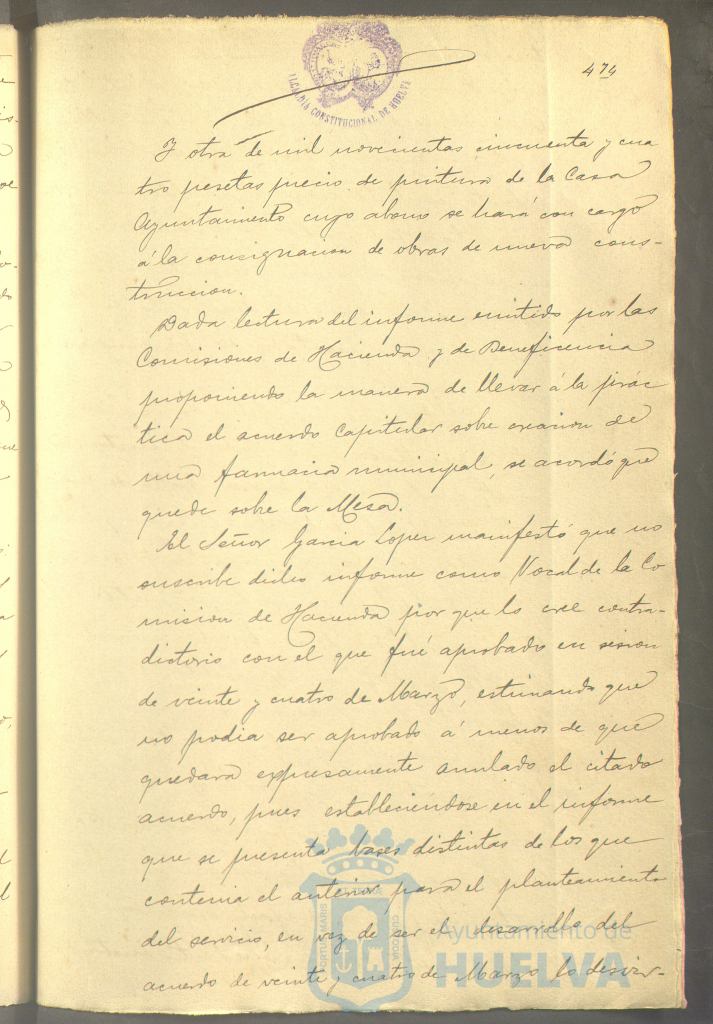 474
ALCALDIA CONSTITUCIONAL DE HUELVA
Y otra de mil novecientas cincuenta y cua
tro pesetas precio de pintura de la Casa
Ayuntamiento cuyo abono se hará con cargo
á la consignacion de obras de nueva cons-
truccion.
Dada lectura del informe emitido por las
Comisiones de Hacienda y de Beneficencia
proponiendo la manera de llevar á la prác
tica el acuerdo Capitular sobre creacion de
una farmacia municipal, se acordó que
quede sobre la Mesa.
El Señor Garcia Lopez manifestó que no
suscribe dicho informe como Vocal de la Co
mision de Hacienda por que lo cree contra-
dictorio con el que fué aprobado en sesion
de veinte y cuatro de Marzo, estimando que
no podia ser aprobado á menos de que
quedara expresamente anulado el citado
acuerdo, pues estableciendose en el informe
que se presenta bases distintas de los que
contenia el anterior para el planteamiento
del servicio, en vez de ser el desarrollo del
acuerdo de veinte y cuatro de Marzo lo desvir-
Ayuntamiento de
HUELVA